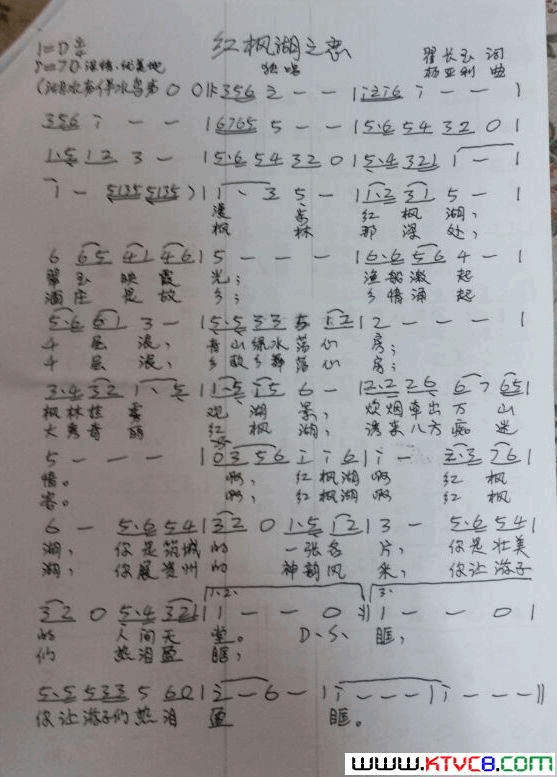 红枫湖之恋
1=D 调
独唱
翟长玉 词
♩=70 深情、优美地
杨亚利 曲
0 0 |: 3 5 6 2̇ - - | i 2 i 6 i - - |
3 5 6 i - - | 6 7 6 5 5 - - | 5·6 5 4 3 2 0 |
1·5 1 2 3 - | 5·6 5 4 3 2 0 | 5·4 3 2 1 1 - |
1 - 5135 5135 ) | 1 · 3 5 - | 1·2 3 1 5 - |
红 枫 湖,
枫 林 那 深 处,
6 6 5 4 1 4 6 | 5 - - - | 6·6 5 6 4 - |
翠 玉 映 霞 光;
渔 船 激 起
酒 庄 是 故 乡;
乡 情 涌 起
5·6 6 1 3 - | 5·5 3 3 5 1 2 | 2 - - - |
千 层 浪, 青 山 绿 水 荡 心 房;
千 层 浪, 乡 歌 乡 舞 荡 心 房;
3·4 3 2 1 · 5 | 1·5 1 5 6 - | 2·2 2 6 6 7 6 5 |
枫 林 挂 雾 观 湖 景, 炊 烟 牵 出 万 山
大 秀 奇 丽 红 枫 湖, 诱 来 八 方 痴 迷
5 - - - | 0 3 5 6 i i 6 | i - 2·3 7 6 |
情。 啊, 红 枫 湖 啊 红 枫
客。 啊, 红 枫 湖 啊 红 枫
6 - 5·6 5 4 | 3 2 0 1·5 1 2 | 3 - 5·6 5 4 |
湖, 你 是 筑 城 的 一 张 名 片, 你 是 壮 美
湖, 你 展 贵 州 的 神 韵 风 采, 你 让 游 子
1.2. 3.
3 2 0 5·4 3 2 1 | 1 - - 0 :| 1 - - 0 |
的 人 间 天 堂。 D.S. 眶,
们 热 泪 盈 眶;
5·5 5 3 3 5 6 0 | 2̇ - 6 - | i - - - | i - - - ||
你 让 游 子 们 热 泪 盈 眶。
www.KTVC8.com